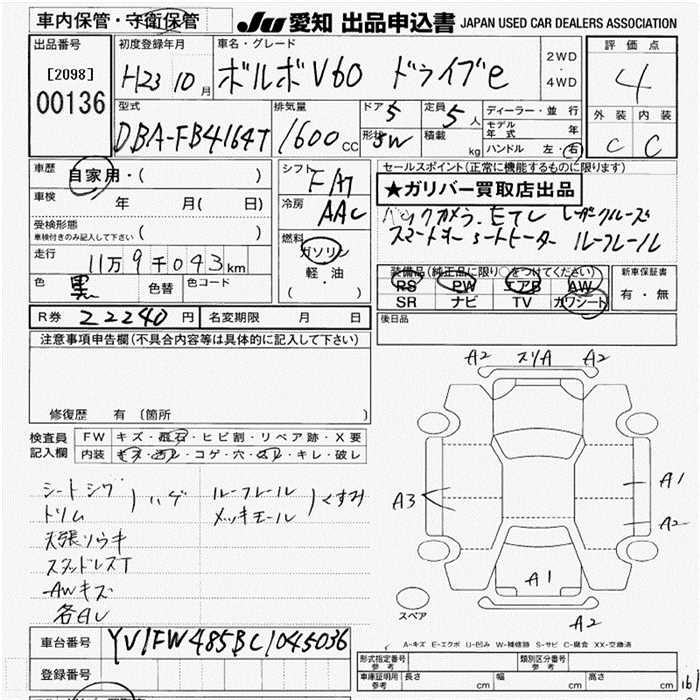 車内保管・守衛保管
JU 愛知 出品申込書 JAPAN USED CAR DEALERS ASSOCIATION
出品番号
[2098]
00136
初度登録年月
H23 10月
車名・グレード
ボルボV60 ドライブe
2WD・4WD
評価点
4
外装 内装
C C
型式
DBA-FB4164T
排気量
1600cc
ドア 5
形状 SW
定員 5人
積載 kg
ディーラー・並行
モデル年式 年
ハンドル 左・右
車歴
自家用・( )
車検
年 月( 日)
受検形態
車検付きのみ記入して下さい
( )
走行
11万9千043km
色
黒
色替
色コード
シフト
FAT
冷房
AAC
燃料
ガソリン
軽・油
( ・ )
セールスポイント(正常に機能するものに限ります)
★ガリバー買取店出品
バックカメラ、ETC レーダークルーズ
スマートキー シートヒーター ルーフレール
装備品(純正品に限り○をつけてください)
RS PW エアB AW
SR ナビ TV カワシート
新車保証書
有・無
後日品
R券 22240円
名変期限 月 日
注意事項申告欄(不具合内容等は具体的に記入して下さい)
修復歴 有 (箇所
検査員記入欄
FW キズ・飛石・ヒビ割・リペア跡・X要
内装 キズ・汚レ・コゲ・穴・・キレ・破レ
シートシワ
トリム
ハゲ
ルーフレール
メッキモール
くすみ
天張ソウキ
スタッドレスT
AWキズ
各AU
A2 スリA A2
A3
A1
A2
A1
A2
スペア
A-キズ E-エクボ U-凹み W-補修跡 S-サビ C-腐食 XX-交換済
車台番号
YV1FW485BC1045036
登録番号
形式指定番号
参考
類別区分番号
参考
車庫証明用
参考
長さ cm
幅 cm
高さ cm